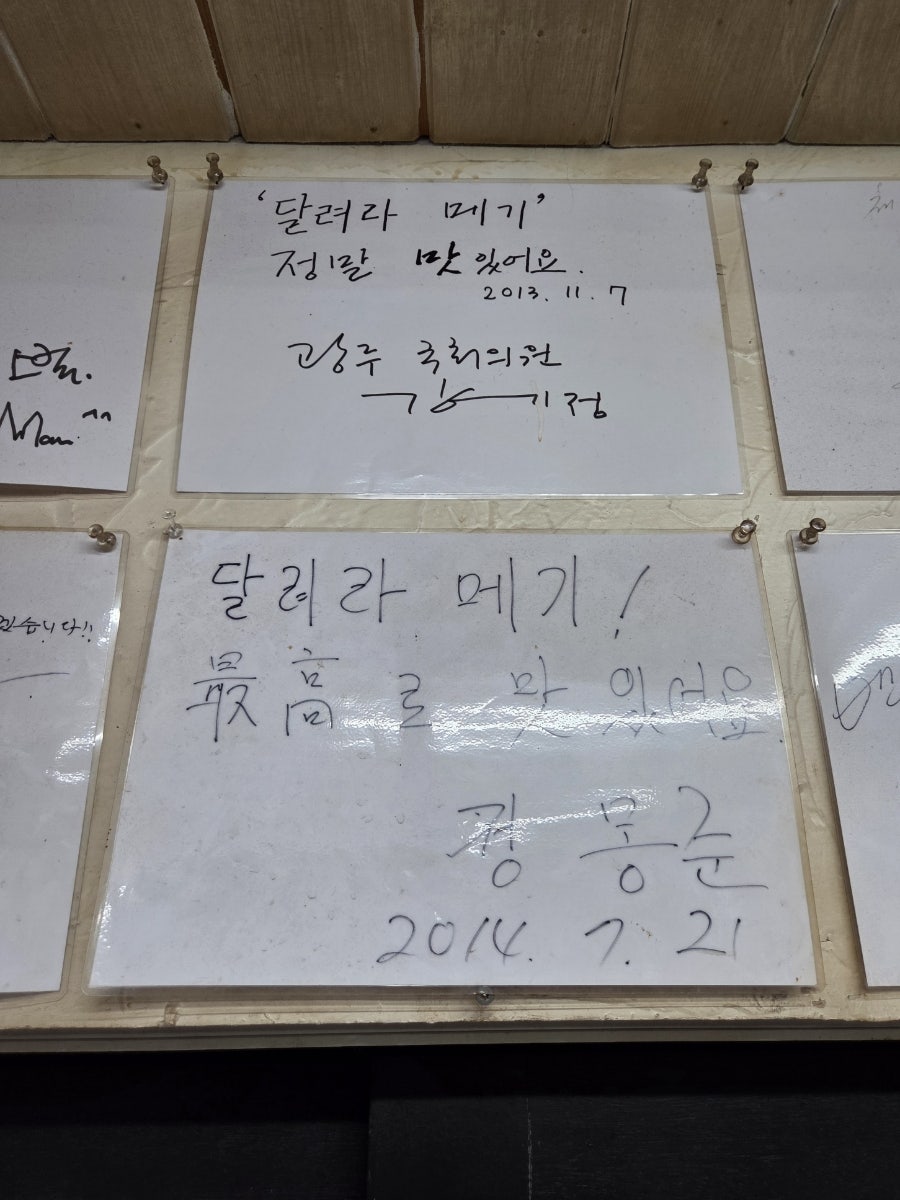 '달려라 메기'
정말 맛있어요.
2013. 11. 7
광주 국회의원
강기정
습니다!!
달려라 메기!
最高로 맛있어요
정몽준
2014. 7. 21